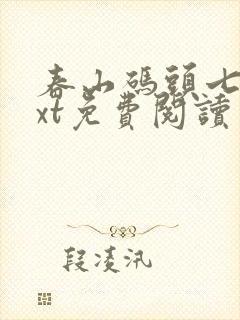 春山碼頭七
xt免費閱讀
段凌汛